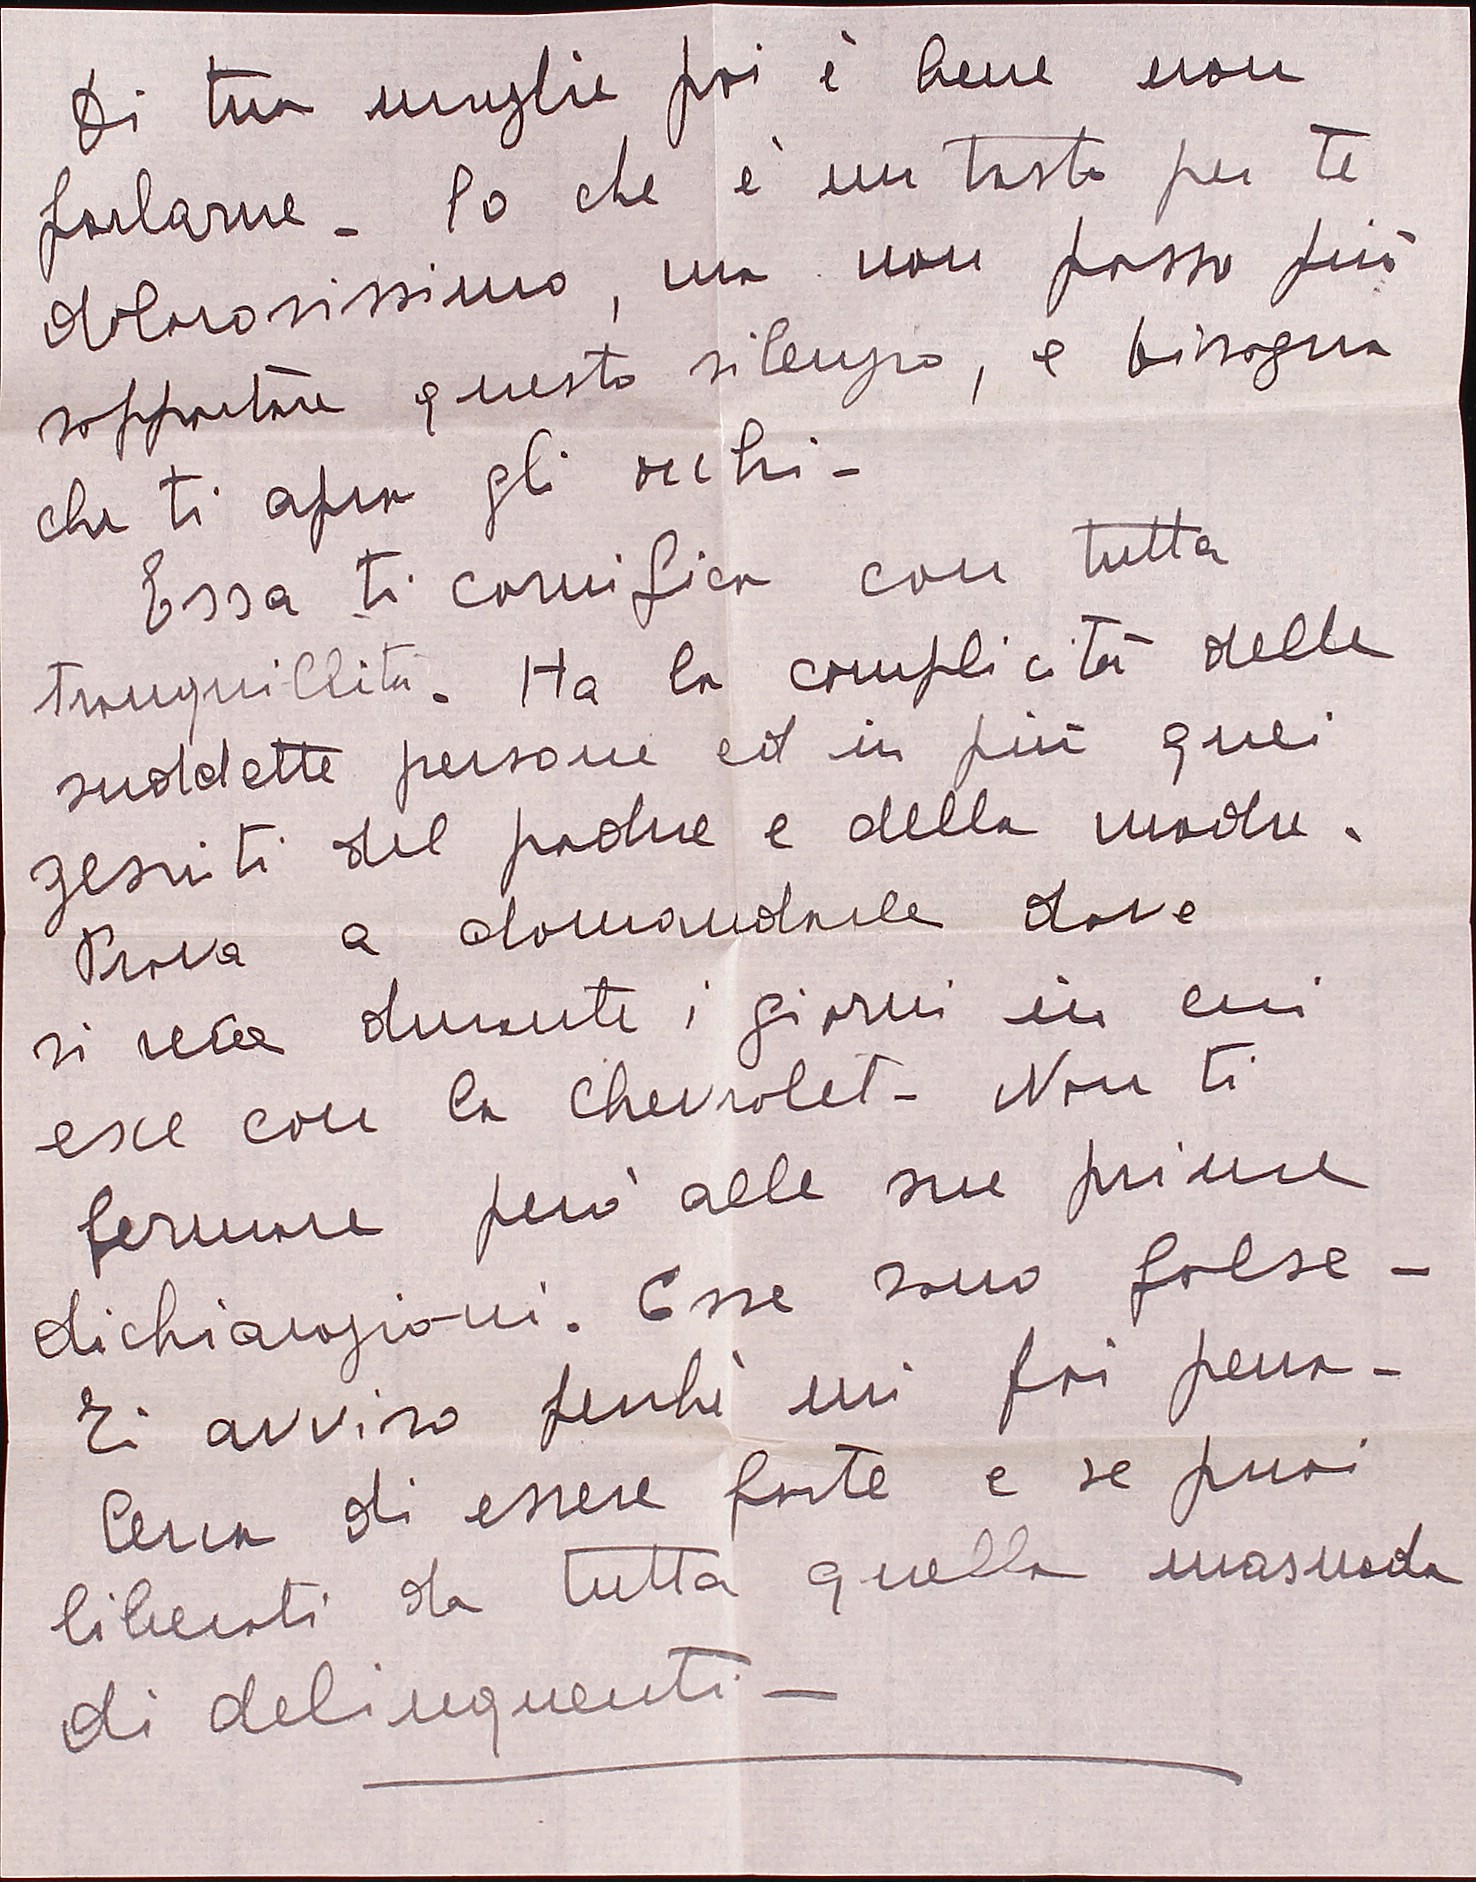 Di tua moglie poi è bene non
parlarne - So che è un tasto per te
dolorosissimo, ma non posso più
sopportare questo silenzio, e bisogna
che ti apra gli occhi -
Essa ti cornifica con tutta
tranquillità. Ha la complicità delle
suddette persone ed in più quei
gesuiti del padre e della madre.
Prova a domandarle dove
si reca durante i giorni in cui
esce con la Chevrolet - Non ti
fermare però alle sue prime
dichiarazioni. Esse sono false -
Ti avviso perchè mi fai pena -
Cerca di essere forte e se puoi
liberati da tutta quella masnada
di delinquenti -